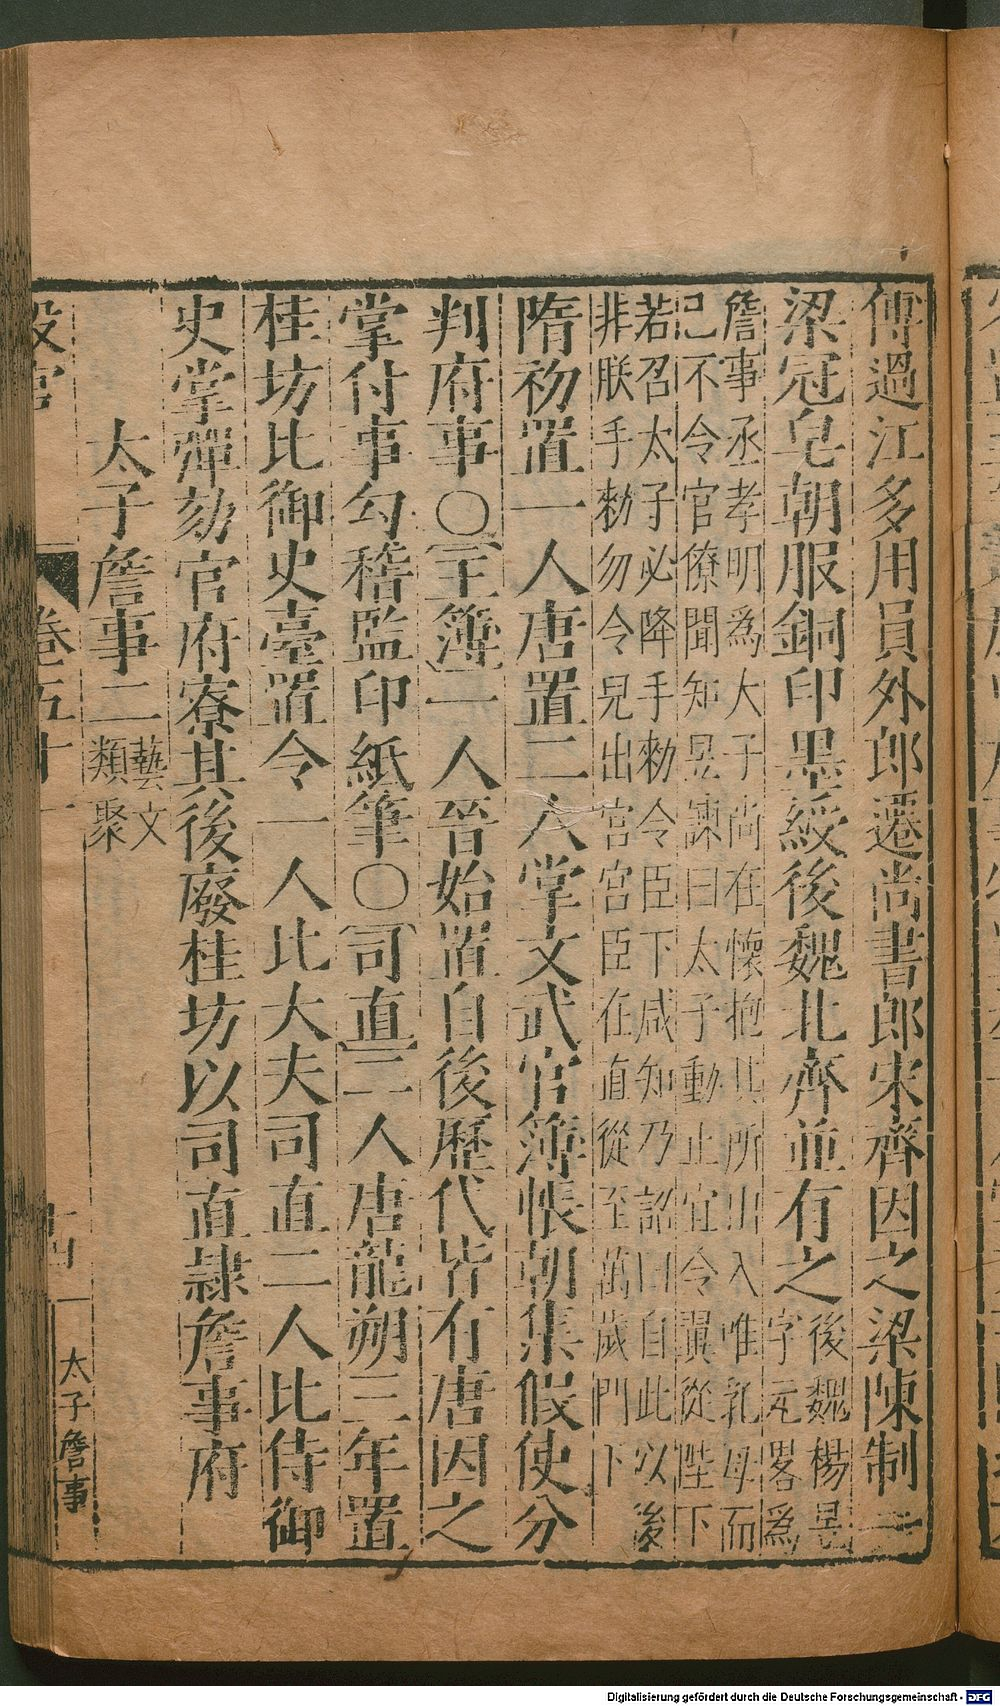 傅過江多用員外郎遷尚書郎宋齊因之梁陳制一
梁冠皂朝服銅印墨綬後魏北齊並有之後魏楊昱字元畧爲
詹事丞孝明爲大子尚在懷抱其所出入唯乳母而
已不令官僚聞知昱諫曰太子動止宜令翼從陛下
若召太子必降手勑令臣下咸知乃詔曰自此以後
非朕手勑勿令兒出宮宮臣在直從至萬歲門下
隋初置一人唐置二人掌文武官簿帳朝集假使分
判府事〇主簿二人晉始置自後歷代皆有唐因之
掌付事勾稽監印紙筆〇司直二人唐龍朔三年置
桂坊比御史臺置令一人比大夫司直二人比侍御
史掌彈劾官府寮其後廢桂坊以司直隷詹事府
太子詹事二藝文類聚
設官 卷五十一 十四 太子詹事
Digitalisierung gefördert durch die Deutsche Forschungsgemeinschaft - DFG